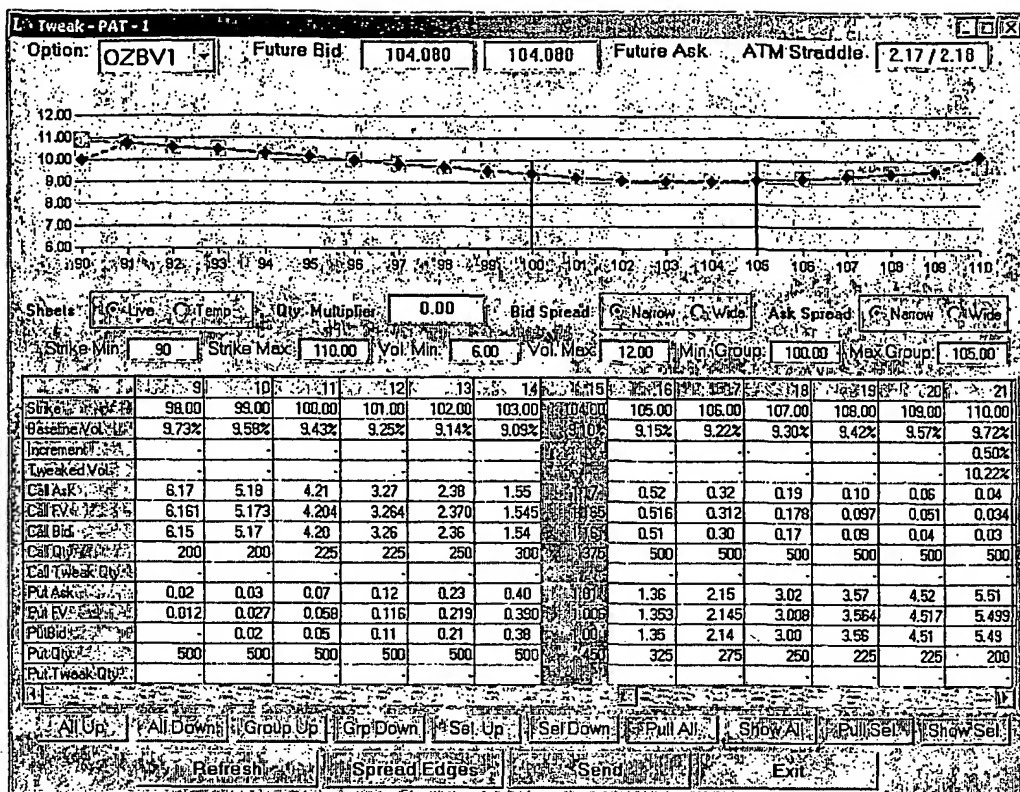 Tweak - PAT - 1
Option: OZBV1 Future Bid 104.080 104.080 Future Ask ATM Straddle: 2.17 / 2.18
12.00
11.00
10.00
9.00
8.00
7.00
6.00
90 91 92 93 94 95 96 97 98 99 100 101 102 103 104 105 106 107 108 109 110
Sheets Live Temp Qty. Multiplier 0.00 Bid Spread Narrow Wide Ask Spread Narrow Wide
Strike Min: 90 Strike Max: 110.00 Vol. Min: 6.00 Vol. Max: 12.00 Min. Group: 100.00 Max Group: 105.00
9 10 11 12 13 14 15 16 17 18 19 20 21
Strike 98.00 99.00 100.00 101.00 102.00 103.00 104.00 105.00 106.00 107.00 108.00 109.00 110.00
Baseline Vol. 9.73% 9.58% 9.43% 9.25% 9.14% 9.09% 9.15% 9.22% 9.30% 9.42% 9.57% 9.72%
Increment - - - - - - - - - - - 0.50%
Tweaked Vol. - - - - - - - - - - - 10.22%
Call Ask 6.17 5.18 4.21 3.27 2.38 1.55 0.52 0.32 0.19 0.10 0.06 0.04
Call FV 6.161 5.173 4.204 3.264 2.370 1.545 0.516 0.312 0.178 0.097 0.051 0.034
Call Bid 6.15 5.17 4.20 3.26 2.36 1.54 0.51 0.30 0.17 0.09 0.04 0.03
Call Qty 200 200 225 225 250 300 375 500 500 500 500 500 500
Call Tweak Qty. - - - - - - - - - - - -
Put Ask 0.02 0.03 0.07 0.12 0.23 0.40 1.36 2.15 3.02 3.57 4.52 5.51
Put FV 0.012 0.027 0.058 0.116 0.219 0.390 1.353 2.145 3.008 3.564 4.517 5.499
Put Bid - 0.02 0.05 0.11 0.21 0.38 1.35 2.14 3.00 3.56 4.51 5.49
Put Qty. 500 500 500 500 500 500 450 325 275 250 225 225 200
Put Tweak Qty. - - - - - - - - - - - -
All Up All Down Group Up Grp Down Sel. Up Sel Down Pull All Show All Pull Sel. Show Sel.
Refresh Spread Edges Send Exit